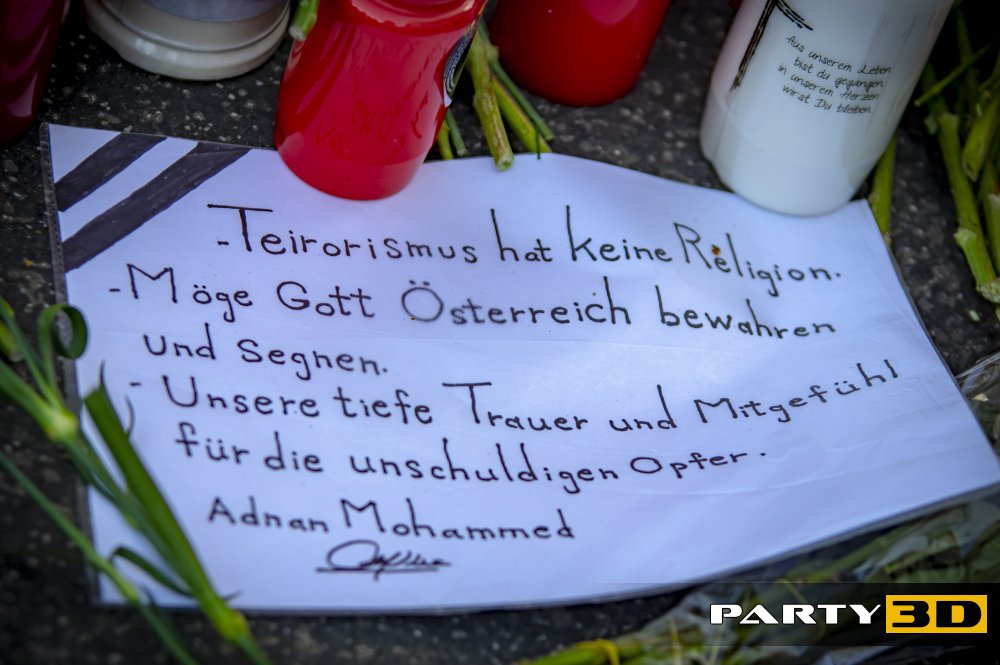 Aus unserem Leben
bist du gegangen,
in unserem Herzen
wirst Du bleiben
-Teirorismus hat keine Religion.
-Möge Gott Österreich bewahren
und Segnen.
- Unsere tiefe Trauer und Mitgefühl
für die unschuldigen Opfer.
Adnan Mohammed
PARTY 3D